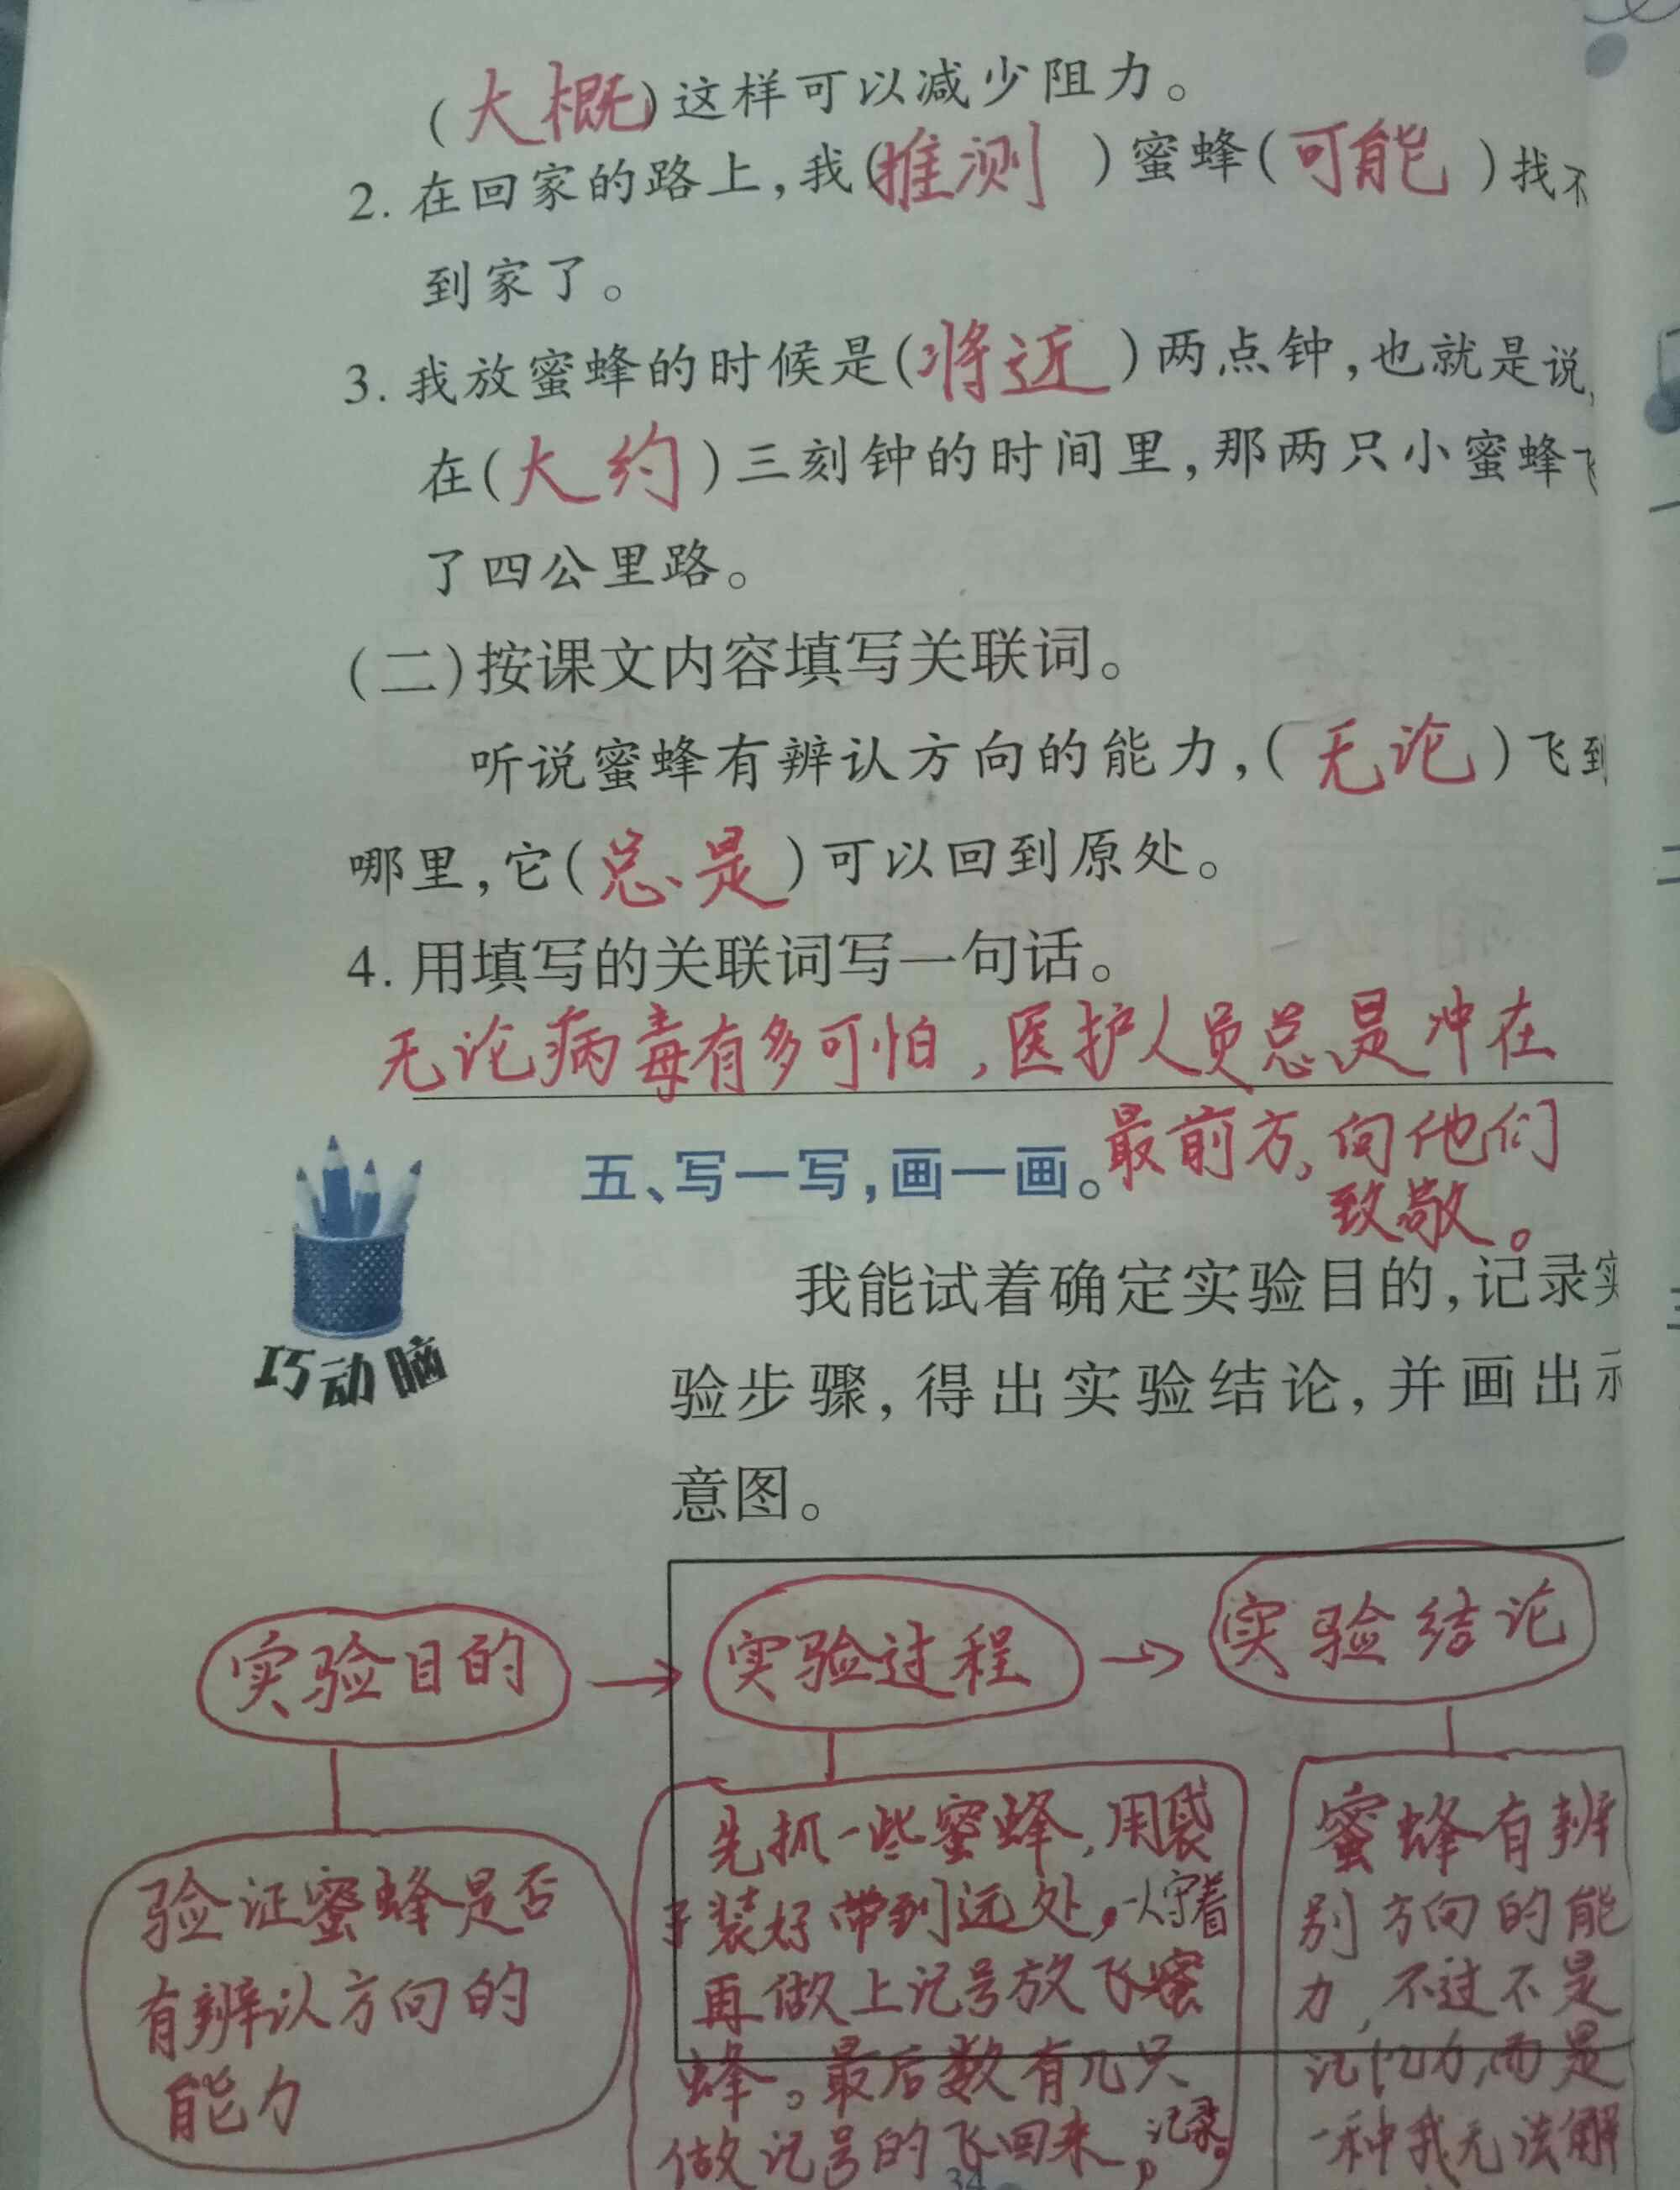 (大概)这样可以减少阻力。
2. 在回家的路上,我(推测)蜜蜂(可能)找不
到家了。
3. 我放蜜蜂的时候是(将近)两点钟,也就是说,
在(大约)三刻钟的时间里,那两只小蜜蜂飞
了四公里路。
(二)按课文内容填写关联词。
听说蜜蜂有辨认方向的能力,(无论)飞到
哪里,它(总是)可以回到原处。
4. 用填写的关联词写一句话。
无论病毒有多可怕,医护人员总是冲在
最前方,向他们
致敬。
五、写一写,画一画。
巧动脑
我能试着确定实验目的,记录实
验步骤,得出实验结论,并画出示
意图。
实验目的 → 实验过程 → 实验结论
验证蜜蜂是否
有辨认方向的
能力
先抓一些蜜蜂,用袋
子装好带到远处,一人守着
再做上记号放飞蜜
蜂。最后数有几只
做记号的飞回来,记录。
蜜蜂有辨
别方向的能
力,不过不是
记忆力,而是
一种我无法解
34